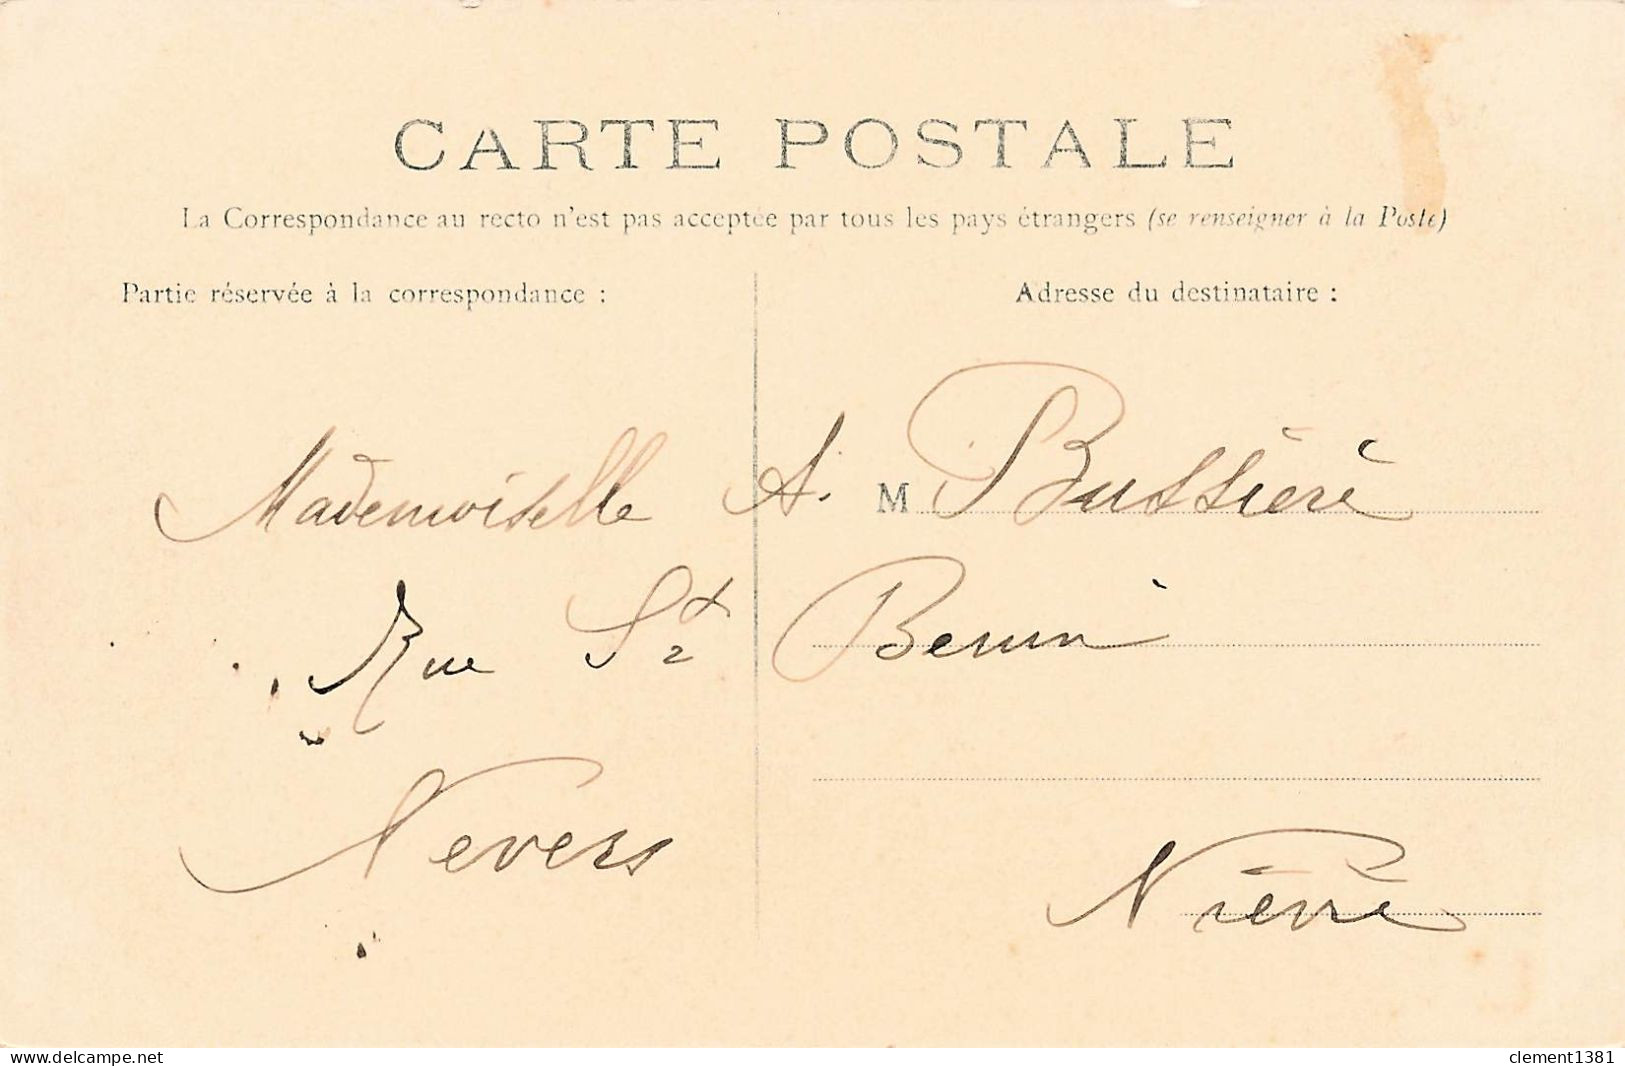 CARTE POSTALE
La Correspondance au recto n'est pas acceptée par tous les pays étrangers (se renseigner à la Poste)
Partie réservée à la correspondance :
Adresse du destinataire :
Mademoiselle A. M Bussière
Rue St Benin
Nevers
Nièvre
delcampe.net
clement1381